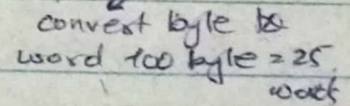 convert byte to
word 100 byte = 25
word